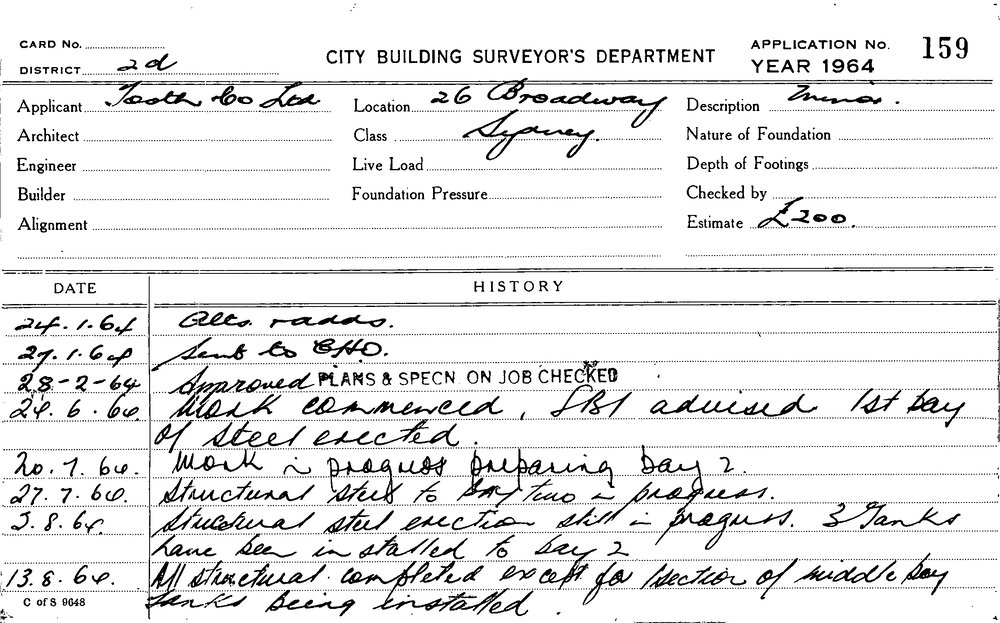 CARD No.
DISTRICT 2d
CITY BUILDING SURVEYOR'S DEPARTMENT
APPLICATION No. 159
YEAR 1964
Applicant Tooth & Co Ltd Location 26 Broadway Description Minor.
Architect Class Sydney. Nature of Foundation
Engineer Live Load Depth of Footings
Builder Foundation Pressure Checked by
Alignment Estimate £200.
DATE HISTORY
24.1.64 Alts. & adds.
29.1.64 Sent to CHO.
28-2-64 Approved PLANS & SPECN ON JOB CHECKED
24.6.64 Work commenced, SBI advised 1st bay
of steel erected.
20.7.64. Work in progress preparing bay 2.
27.7.64. Structural steel to bay two in progress.
3.8.64 Structural steel erection still in progress. 3 Tanks
have been installed to bay 2
13.8.64. All structural completed except for 1 section of middle bay
C of S 9648 tanks being installed.